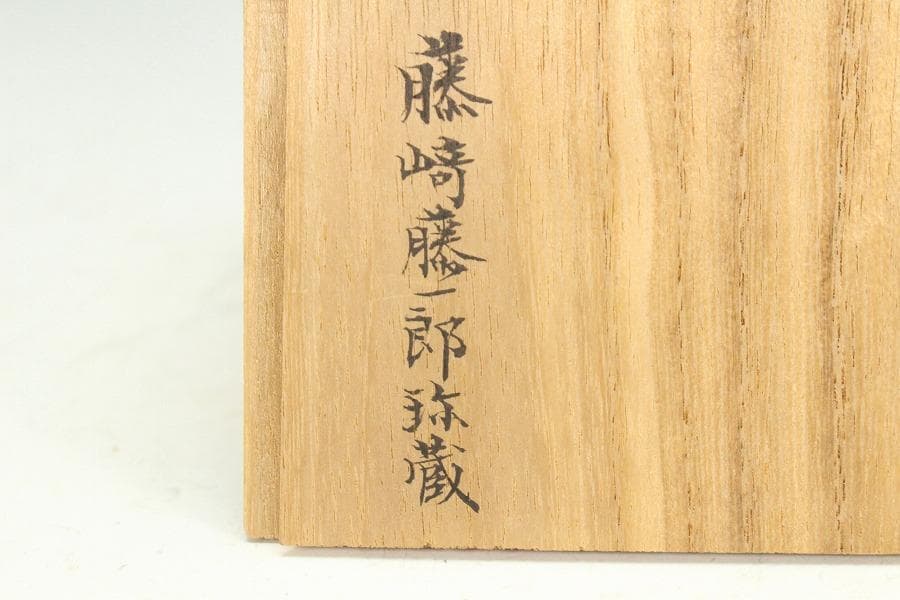 藤崎藤一郎珍蔵